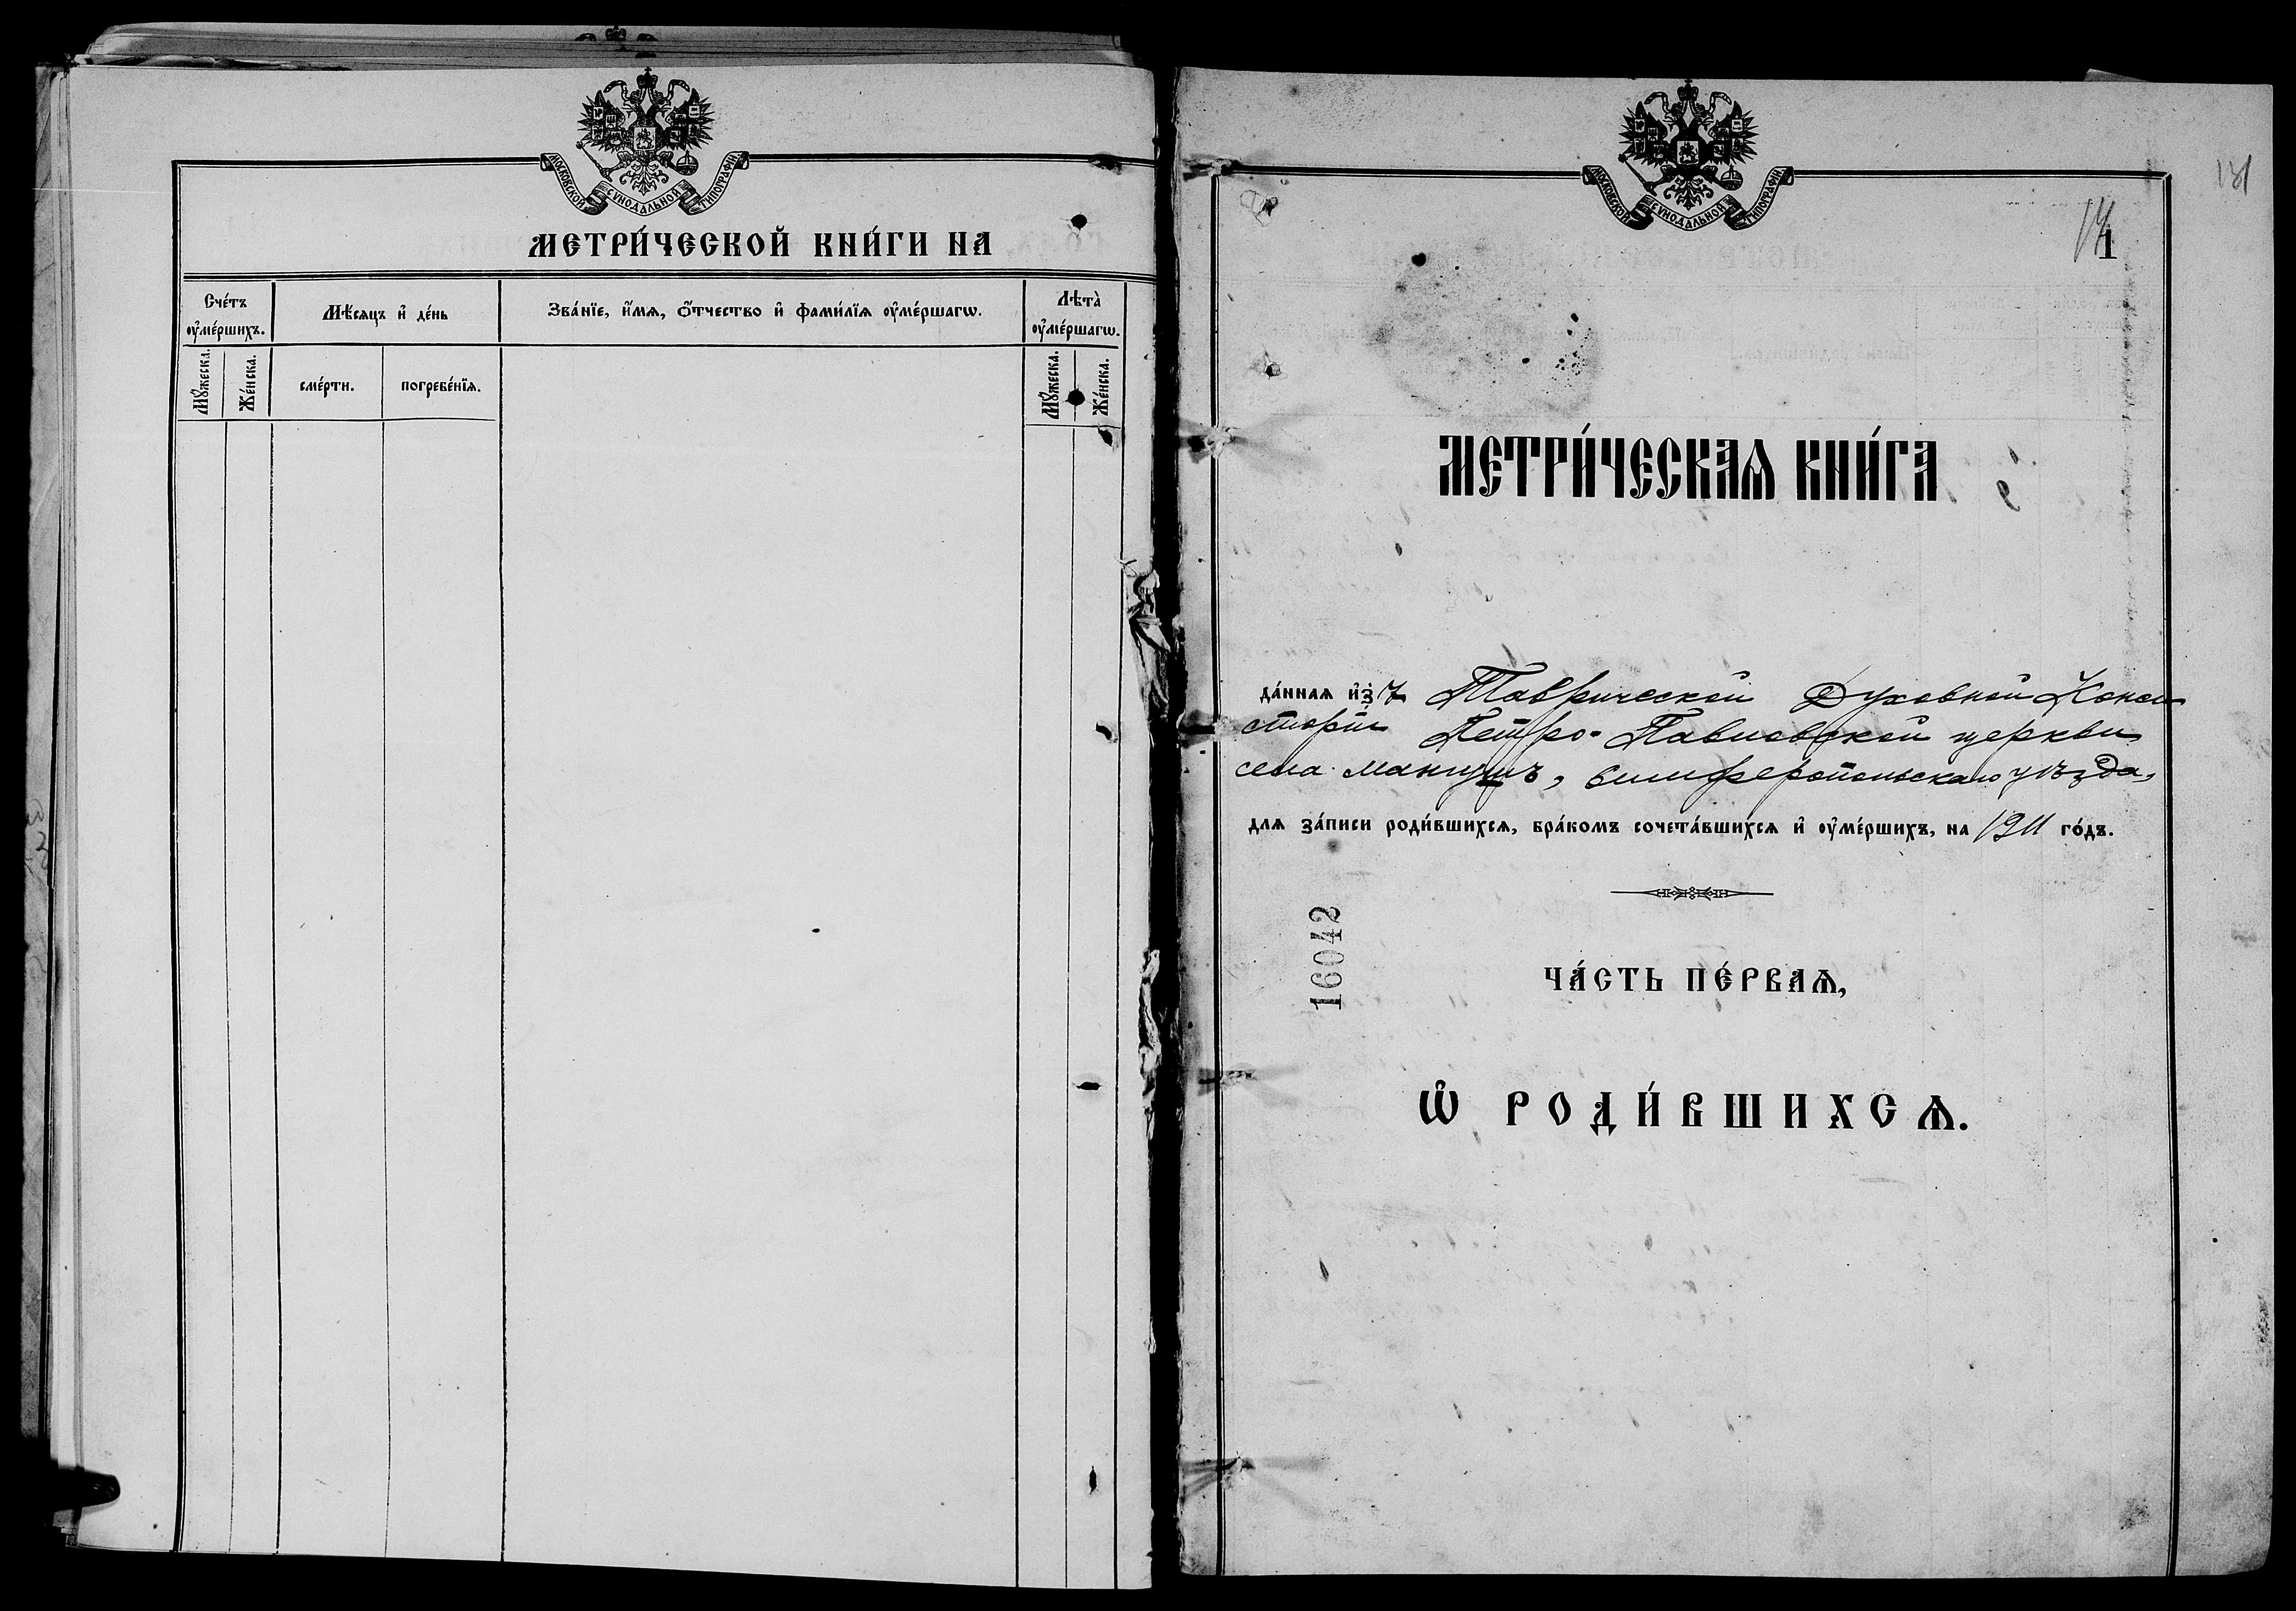 МОСКОВСКОЙ СѴНОДАЛЬНОЙ ТИПОГРАФІИ
МЕТРИ́ЧЕСКОЙ КНИ́ГИ НА
Сче́тъ ᲂу҆ме́ршихъ.
Мѣ́сяцъ и҆ де́нь
Зва́нїе, и҆́мѧ, ѻ҆́тчество и҆ фами́лїѧ ᲂу҆ме́ршагѡ.
Лѣта̀ ᲂу҆ме́ршагѡ.
Мꙋ́жеска.
Же́нска.
сме́рти.
погребе́нїѧ.
Мꙋ́жеска.
Же́нска.
131
МОСКОВСКОЙ СѴНОДАЛЬНОЙ ТИПОГРАФІИ
1
МЕТРИ́ЧЕСКАѦ КНИ́ГА
да́ннаѧ и҆зъ Таврической Духовной Конси
сторіи Петро-Павловской церкви
села Мангушъ, Симферопольскаго уѣзда,
длѧ за́писи роди́вшихсѧ, бра́комъ сочета́вшихсѧ и҆ ᲂу҆ме́ршихъ, на 1911 го́дъ.
16042
ЧА́СТЬ ПЕ́РВАѦ,
Ѡ҆ РОДИ́ВШИХСѦ.